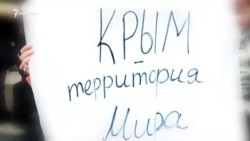 КРЫМ
территория
Мира